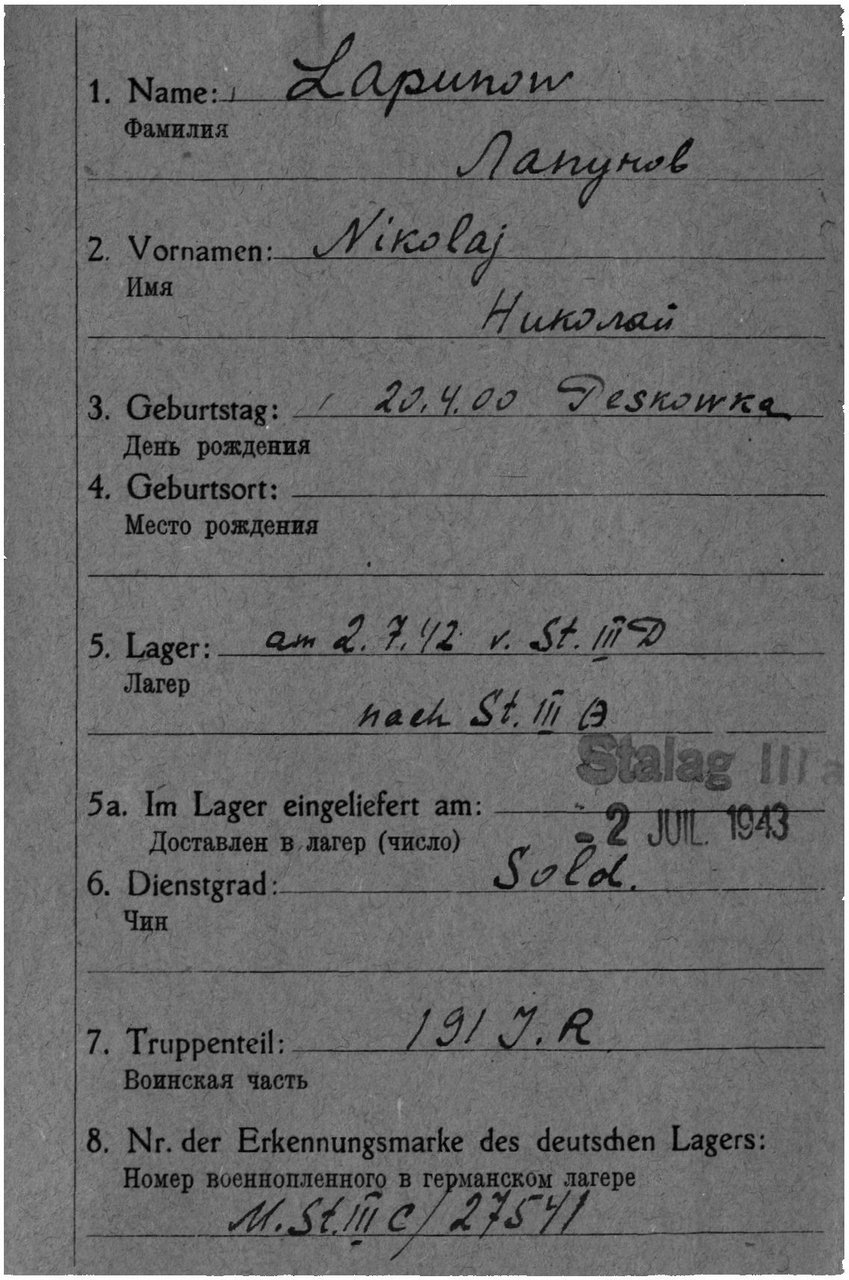 1. Name: Lapunow
Фамилия
Лапунов
2. Vornamen: Nikolaj
Имя
Николай
3. Geburtstag: 20.4.00 Peskowka
День рождения
4. Geburtsort:
Место рождения
5. Lager: am 2.7.42 v. St. III D
Лагер
nach St. III A
Stalag III a
5a. Im Lager eingeliefert am: - 2 JUIL. 1943
Доставлен в лагер (число)
6. Dienstgrad: Sold.
Чин
7. Truppenteil: 191 J.R
Воинская часть
8. Nr. der Erkennungsmarke des deutschen Lagers:
Номер военнопленного в германском лагере
M.St.III C/27541